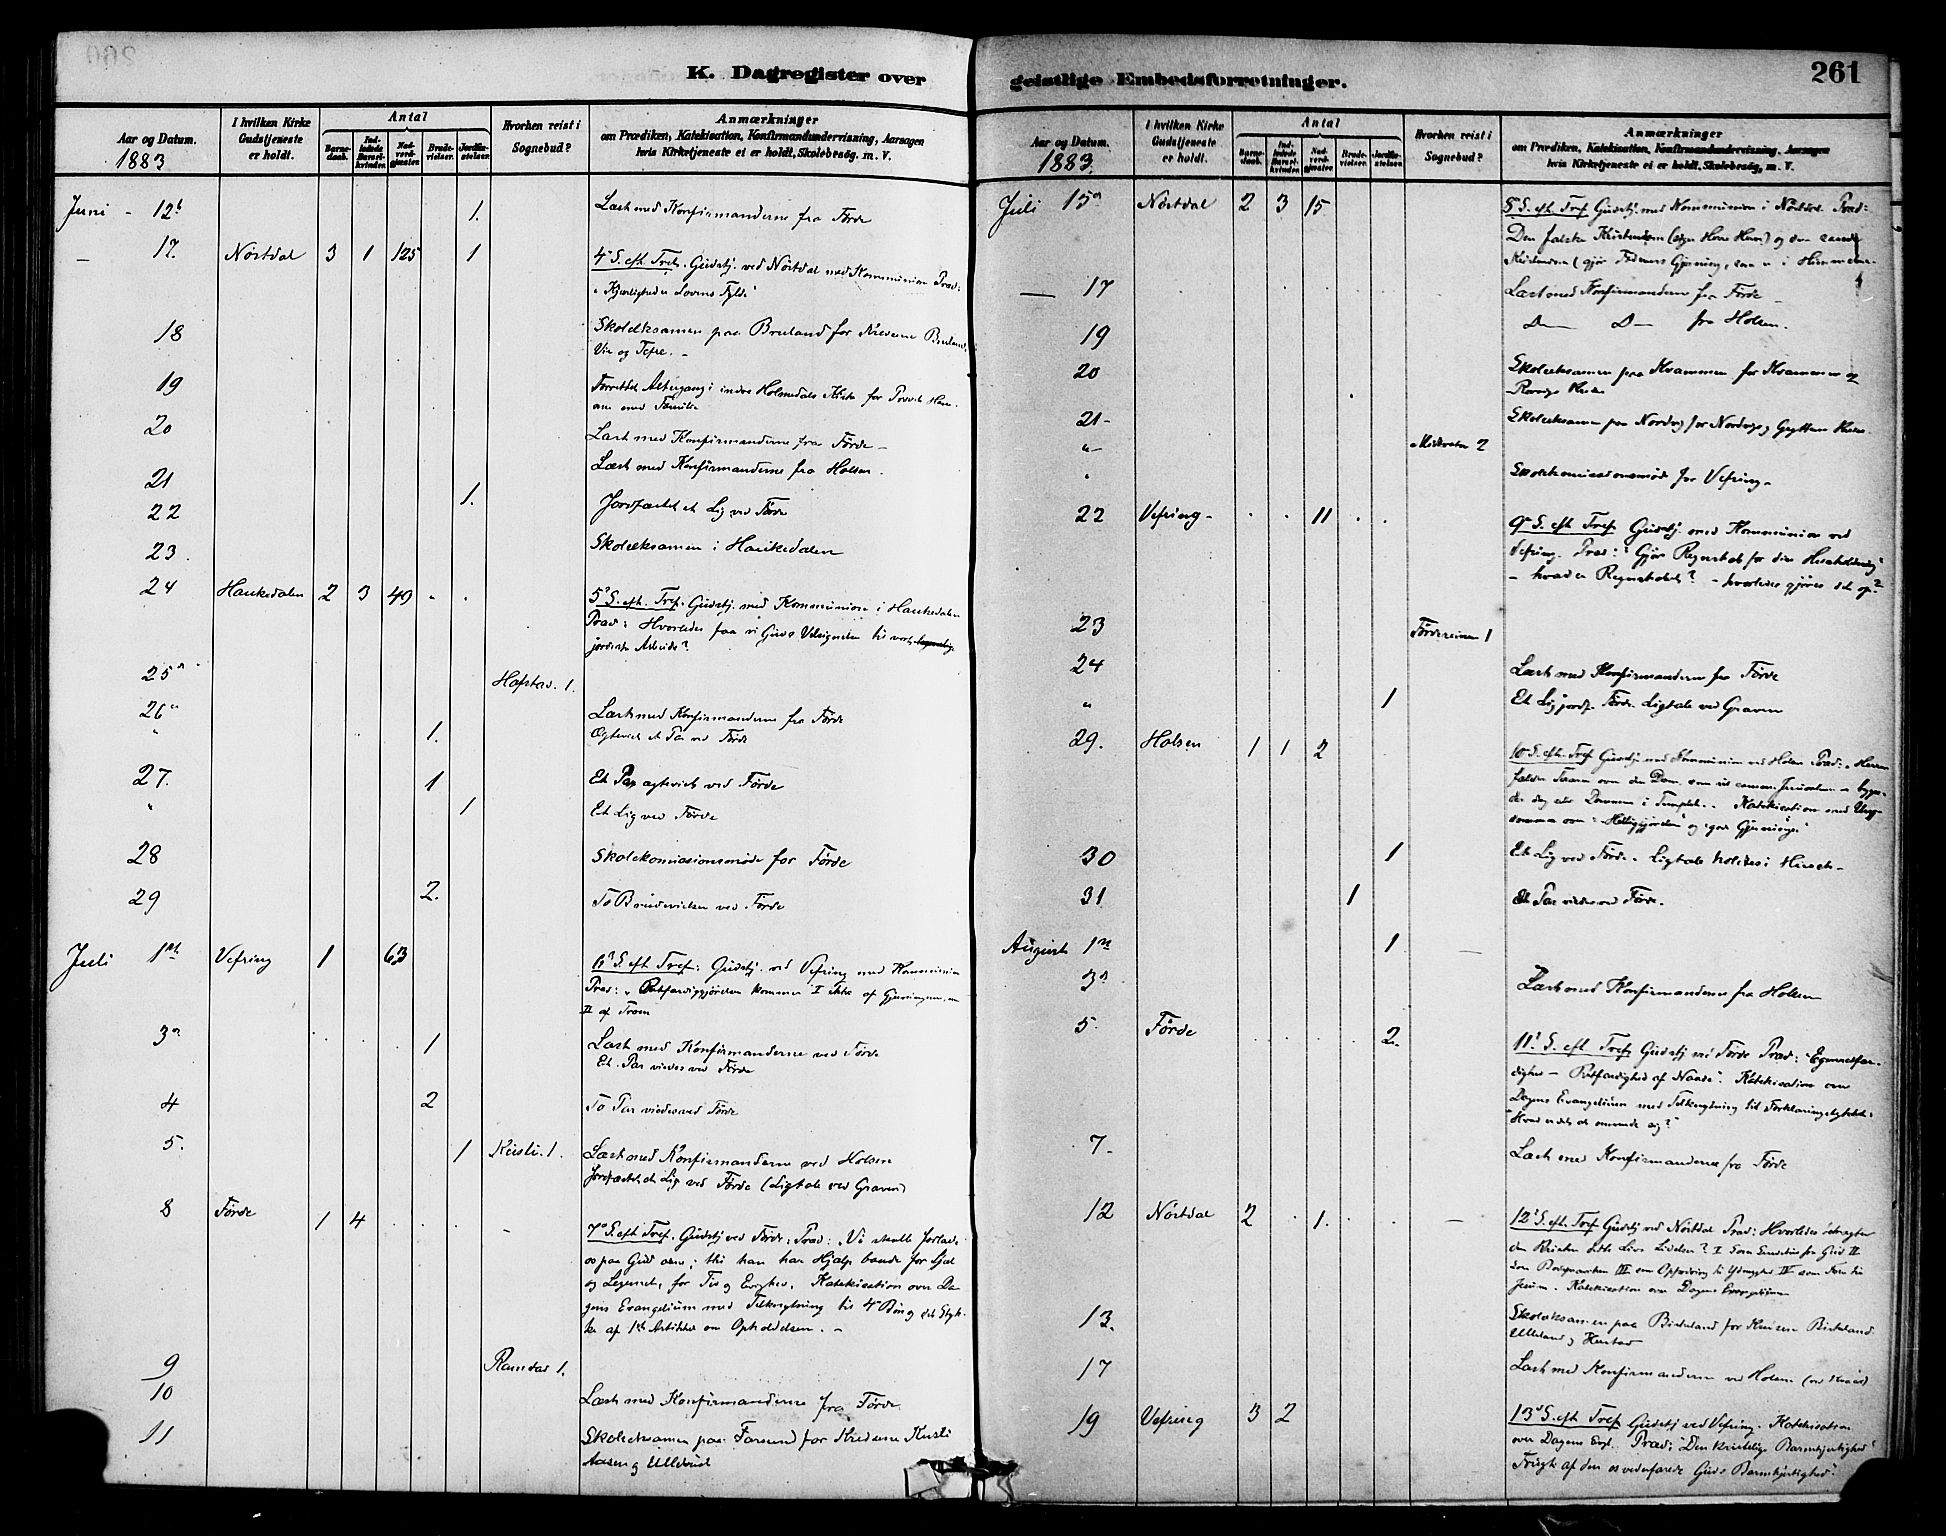 K. Dagregister over
Aar og Datum. 1883
I hvilken Kirke Gudstjeneste er holdt.
Antal
Barne-daab. Ind-ledede Barsel-kvinder. Nad-verd-gjæster. Brude-vielser. Jordfæ-stelser.
Hvorhen reist i Sognebud?
Anmærkninger
om Prædiken, Katekisation, Konfirmandundervisning, Aarsagen
hvis Kirketjeneste ei er holdt, Skolebesøg, m. V.
Juni - 12 1. Læst med Konfirmanderne fra Førde
— 17. Nøstdal 3 1 125 1 4 S. eft. Tref. Gudstj. ved Nøstdal med Kommunion Præd:
Kjærlighed er Lovens Fylde"
18 Skoleeksamen paa Bruland for Kredsene Bruland,
Vie og Tefre. -
19 Forrettet Altergang i indre Holmedals Kirke for Provst
med Familie
20 Læst med Konfirmanderne fra Førde -
21 Læst med Konfirmanderne fra Holsen.
22 1. Jordfæstet et Lig ved Førde
23. Skoleeksamen i Haukedalen
24 Haukedalen 2 3 49 5 S. eft. Tref. Gudstj. med Kommunion i Haukedalen
Præd: Hvorledes faa vi Guds Velsignelse til vort
jordiske Arbeide?
25 Hafstad. 1.
26 Læst med Konfirmanderne fra Førde
" 1. Ægteviet et Par ved Førde
27. 1 Et Par ægteviet ved Førde
" 1 Et Lig ved Førde
28 Skolekomissionsmøde for Førde
29 2. To Brudevielser ved Førde
Juli 1 Vefring 1 63 6 S. eft Tref: Gudstj. ved Vefring med Kommunion
Præd: "Retfærdiggjørelsen kommer I Ikke af Gjerningerne, men
II af Troen
3 1 Læst med Konfirmanderne ved Førde
Et Par viedes ved Førde
4 2 To Par viedes ved Førde
5. 1 Kusli. 1. Læst med Konfirmanderne ved Holsen
Jordfæstet et Lig ved Førde (Ligtale ved Graven)
8 Førde 1 4 7 S. eft Tref. Gudstj ved Førde: Præd: Vi skulle forlade
os paa Gud alene; thi han har Hjælp baade for Sjæl
og Legemet, for Tid og Evighed. Katekisation over Da-
gens Evangelium med Tilknytning til 4 Bøn og det Styk-
ke af 1st Artikkel om Opholdelsen. -
9 Ramdal 1.
10 Læst med Konfirmanderne fra Førde.
11 Skoleeksamen paa Farsund for Kredsene Kusli
Aasen og Ullebust
geistlige Embedsforretninger.
261
Aar og Datum. 1883.
I hvilken Kirke Gudstjeneste er holdt.
Antal
Barne-daab. Ind-ledede Barsel-kvinder. Nad-verd-gjæster. Brude-vielser. Jordfæ-stelser.
Hvorhen reist i Sognebud?
Anmærkninger
om Prædiken, Katekisation, Konfirmandundervisning, Aarsagen
hvis Kirketjeneste ei er holdt, Skolebesøg, m. V.
Juli 15 Nøstdal 2 3 15 8 S. eft. Tref Gudstj. med Kommunion i Nøstdal. Præd:
Den falske Kristendom (siger Herre Herre) og den sande
Kristendom (gjør Faderens Gjerning, som er i Himmelen
— 17 Læst med Konfirmanderne fra Førde -
19 D— D— fra Holsen.
20 Skoleeksamen paa Kvammen for Kvammen og
Kreds
21- Skoleeksamen paa Nordvig for Nordvigs og Kreds
" - 2
" Skolekomissionsmøde for Vefring -
22 Vefring - 11 9 S. eft Tref Gudstj. med Kommunion ved
Vefring. Præd: "Gjør Regnskab for din Husholdning"
- hvad er Regnskabet? - hvorledes gjøres det op?
23 1
24 Læst med Konfirmanderne fra Førde
" 1 Et Lig jordf. Førde. Ligtale ved Graven
29. Holsen 1 1 2 10 S. eft. Tref Gudstj. med Kommunion ved Holsen Præd: "Herren
fælder Taarer over den Dom, som vil ramme Jerusalem
Dommen i Templet. - Katekisation med Ung-
dommen om "Helliggjørelse" og "gode Gjerninger"
30 1 Et Lig ved Førde. Ligtale holdtes i Huset -
31 1 Et Par viedes ved Førde.
August 1 1 —
3 Læst med Konfirmanderne fra Holsen
5. Førde 2. 11 S. eft Tref Gudstj ved Førde Præd: "Egenretfær-
dighed - Retfærdighed af Naade". Katekisation over
Dagens Evangelium med Tilknytning til Forklaringsstykket:
"Hvad er det at omvende sig?"
7- Læst med Konfirmanderne fra Førde
12 Nøstdal 2 1. — 12 S. eft. Tref Gudstj ved Nøstdal Præd: Hvorledes betragter
den Kristen dette Livs Lidelser? I Som fra Gud II
som III som Opfordring til Ydmyghed IV som til
Jesum. Katekisation over Dagens Evangelium
13. Skoleeksamen paa Birkeland for Kredsene Birkeland
Ulleland og
17 Læst med Konfirmanderne ved Holsen
19 Vefring 3 2 13 S. eft Tref Gudstj ved Vefring. Katekisation
over Dagens Evgl. Præd: "Den kristelige Barmhjertighed
Frugt af den os vederfarede Guds Barmhjertighed".